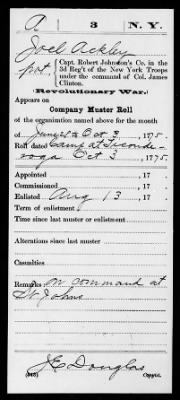 A 3 N.Y.
Joel Ackley
pvt, Capt. Robert Johnston's Co. in the
3d Reg't of the New York Troops
under the command of Col. James
Clinton.
Revolutionary War.
Appears on
Company Muster Roll
of the organization named above for the month
of June 28 to Oct 3, 1775.
Roll dated Camp at Ticonde-
roga Oct 3, 1775.
Appointed , 17 .
Commissioned , 17 .
Enlisted Aug 13, 17 .
Term of enlistment
Time since last muster or enlistment
Alterations since last muster
Casualties
Remarks: on command at
St Johns
J E Douglas
(543) Copyist.